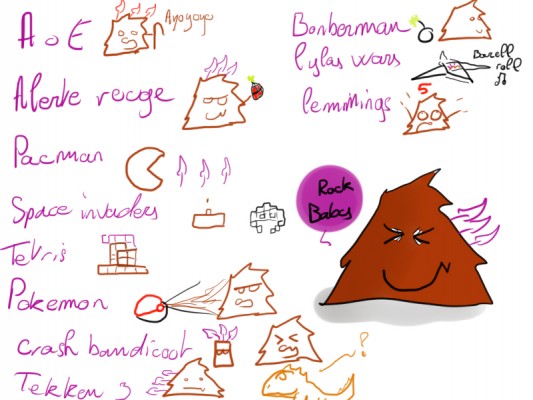 A o E
Ayoyoyo
Alerte rouge
Pacman
Space invaders
Tetris
Pokemon
crash bandicoot
Tekken 3
?
Bomberman
Pylas wars
Barell
roll
lemmings
5
Rock
Balocs